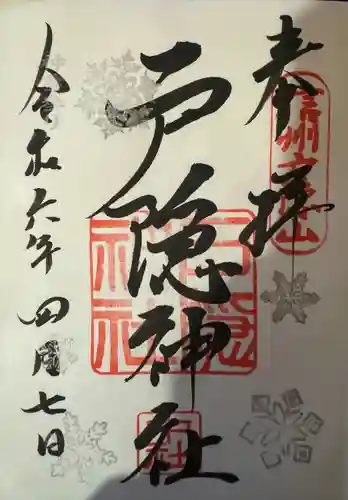 奉拝
信州戸隠山
戸隠神社
戸隠神社
令和六年四月七日